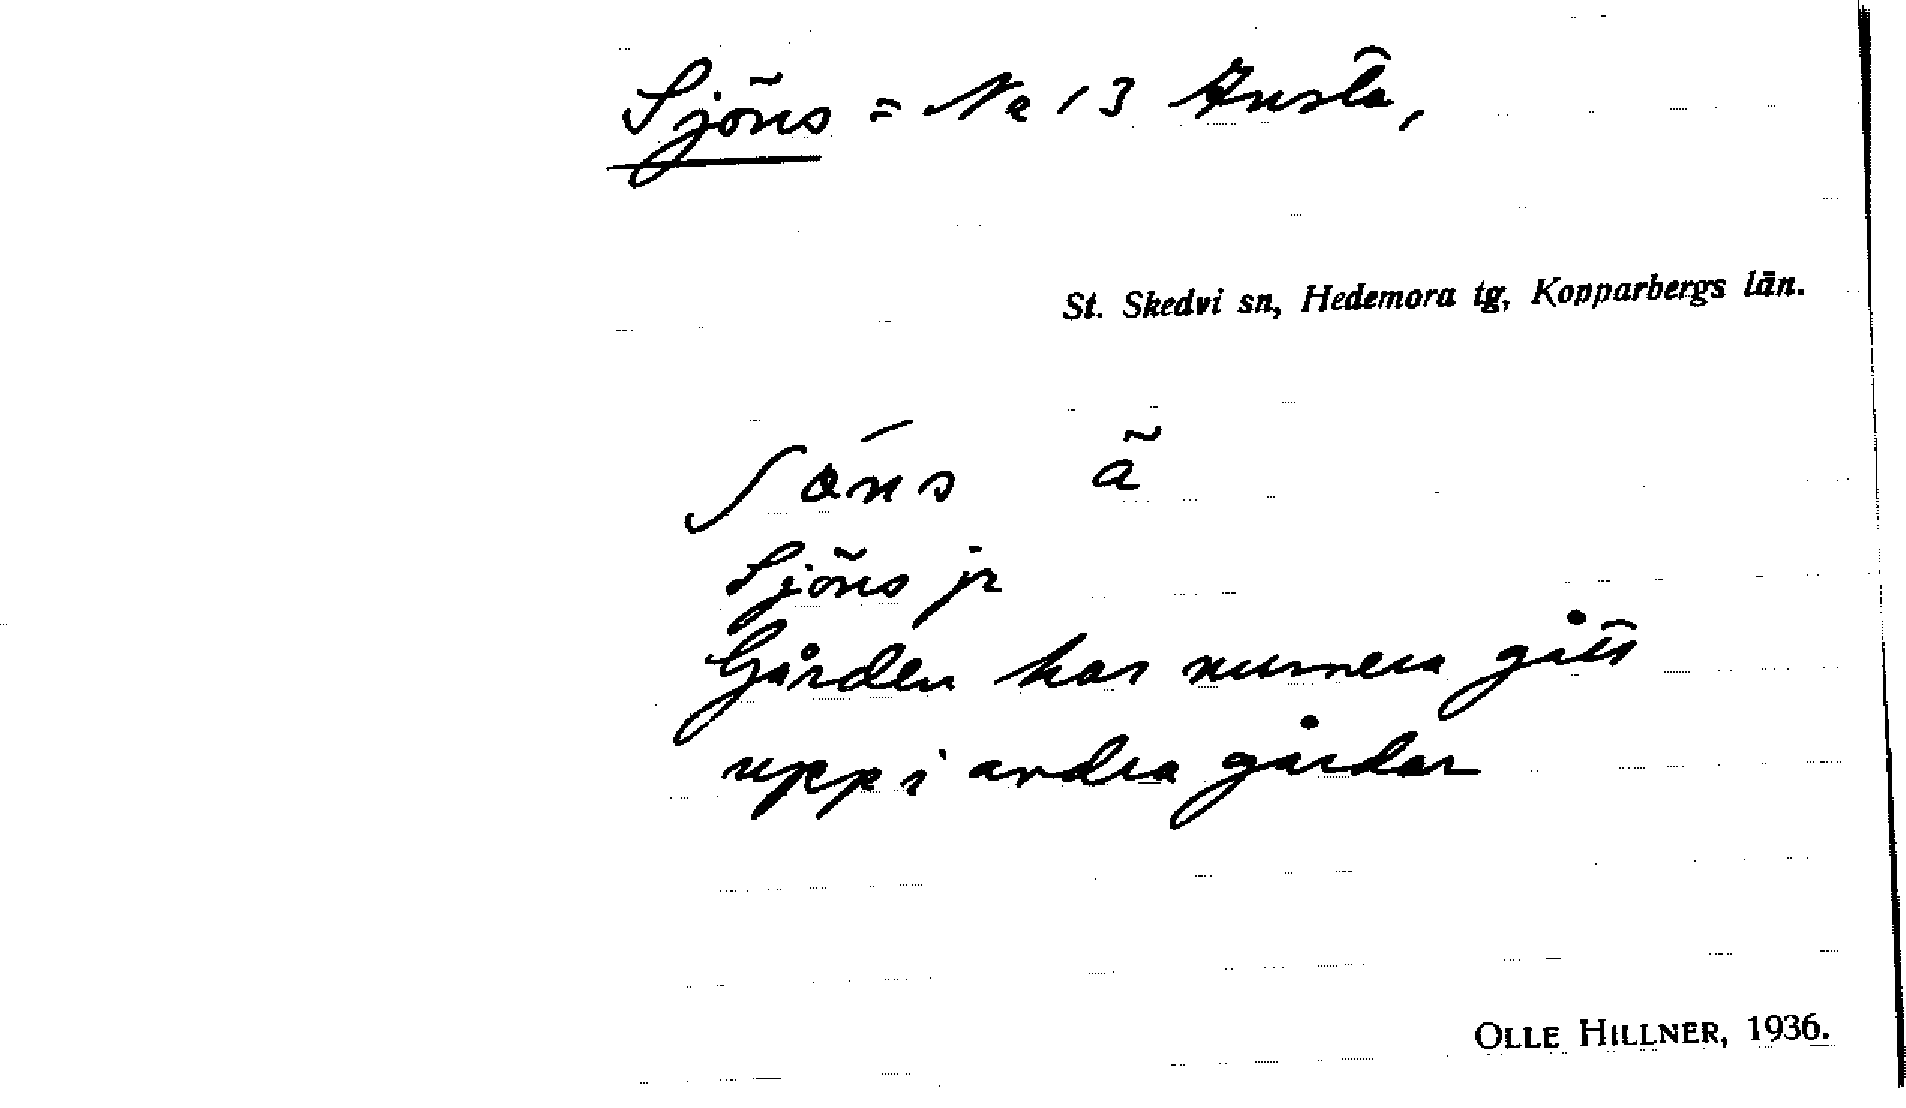 Sjöns = No 13 Husta,
St. Skedvi sn, Hedemora tg, Kopparbergs län.
Sjöns jr
Gården har numera gått
upp i andra gårdar
OLLE HILLNER, 1936.